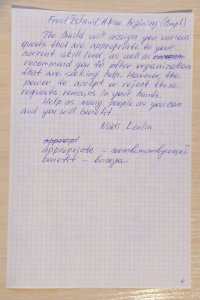 The Guild will assign you various
quests that are appropriate to your
current skill level, as well as
recommend you to other organizations
that are seeking help. However, the
power to accept or reject these
requests remains in your hands.
Help as many people as you can
and you will benefit.
Nadi Lenlin
appropriate – соответствующий
benefit –